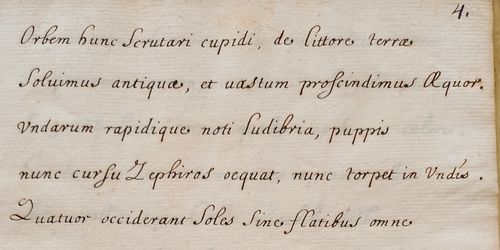 4.
Orbem hunc Scrutari cupidi, de littore terræ
Soluimus antiquæ, et uastum proscindimus Æquor.
Vndarum rapidique noti ludibria, puppis
nunc cursu Zephiros œquat, nunc torpet in Vndis.
Quatuor occiderant Soles Sine flatibus omne